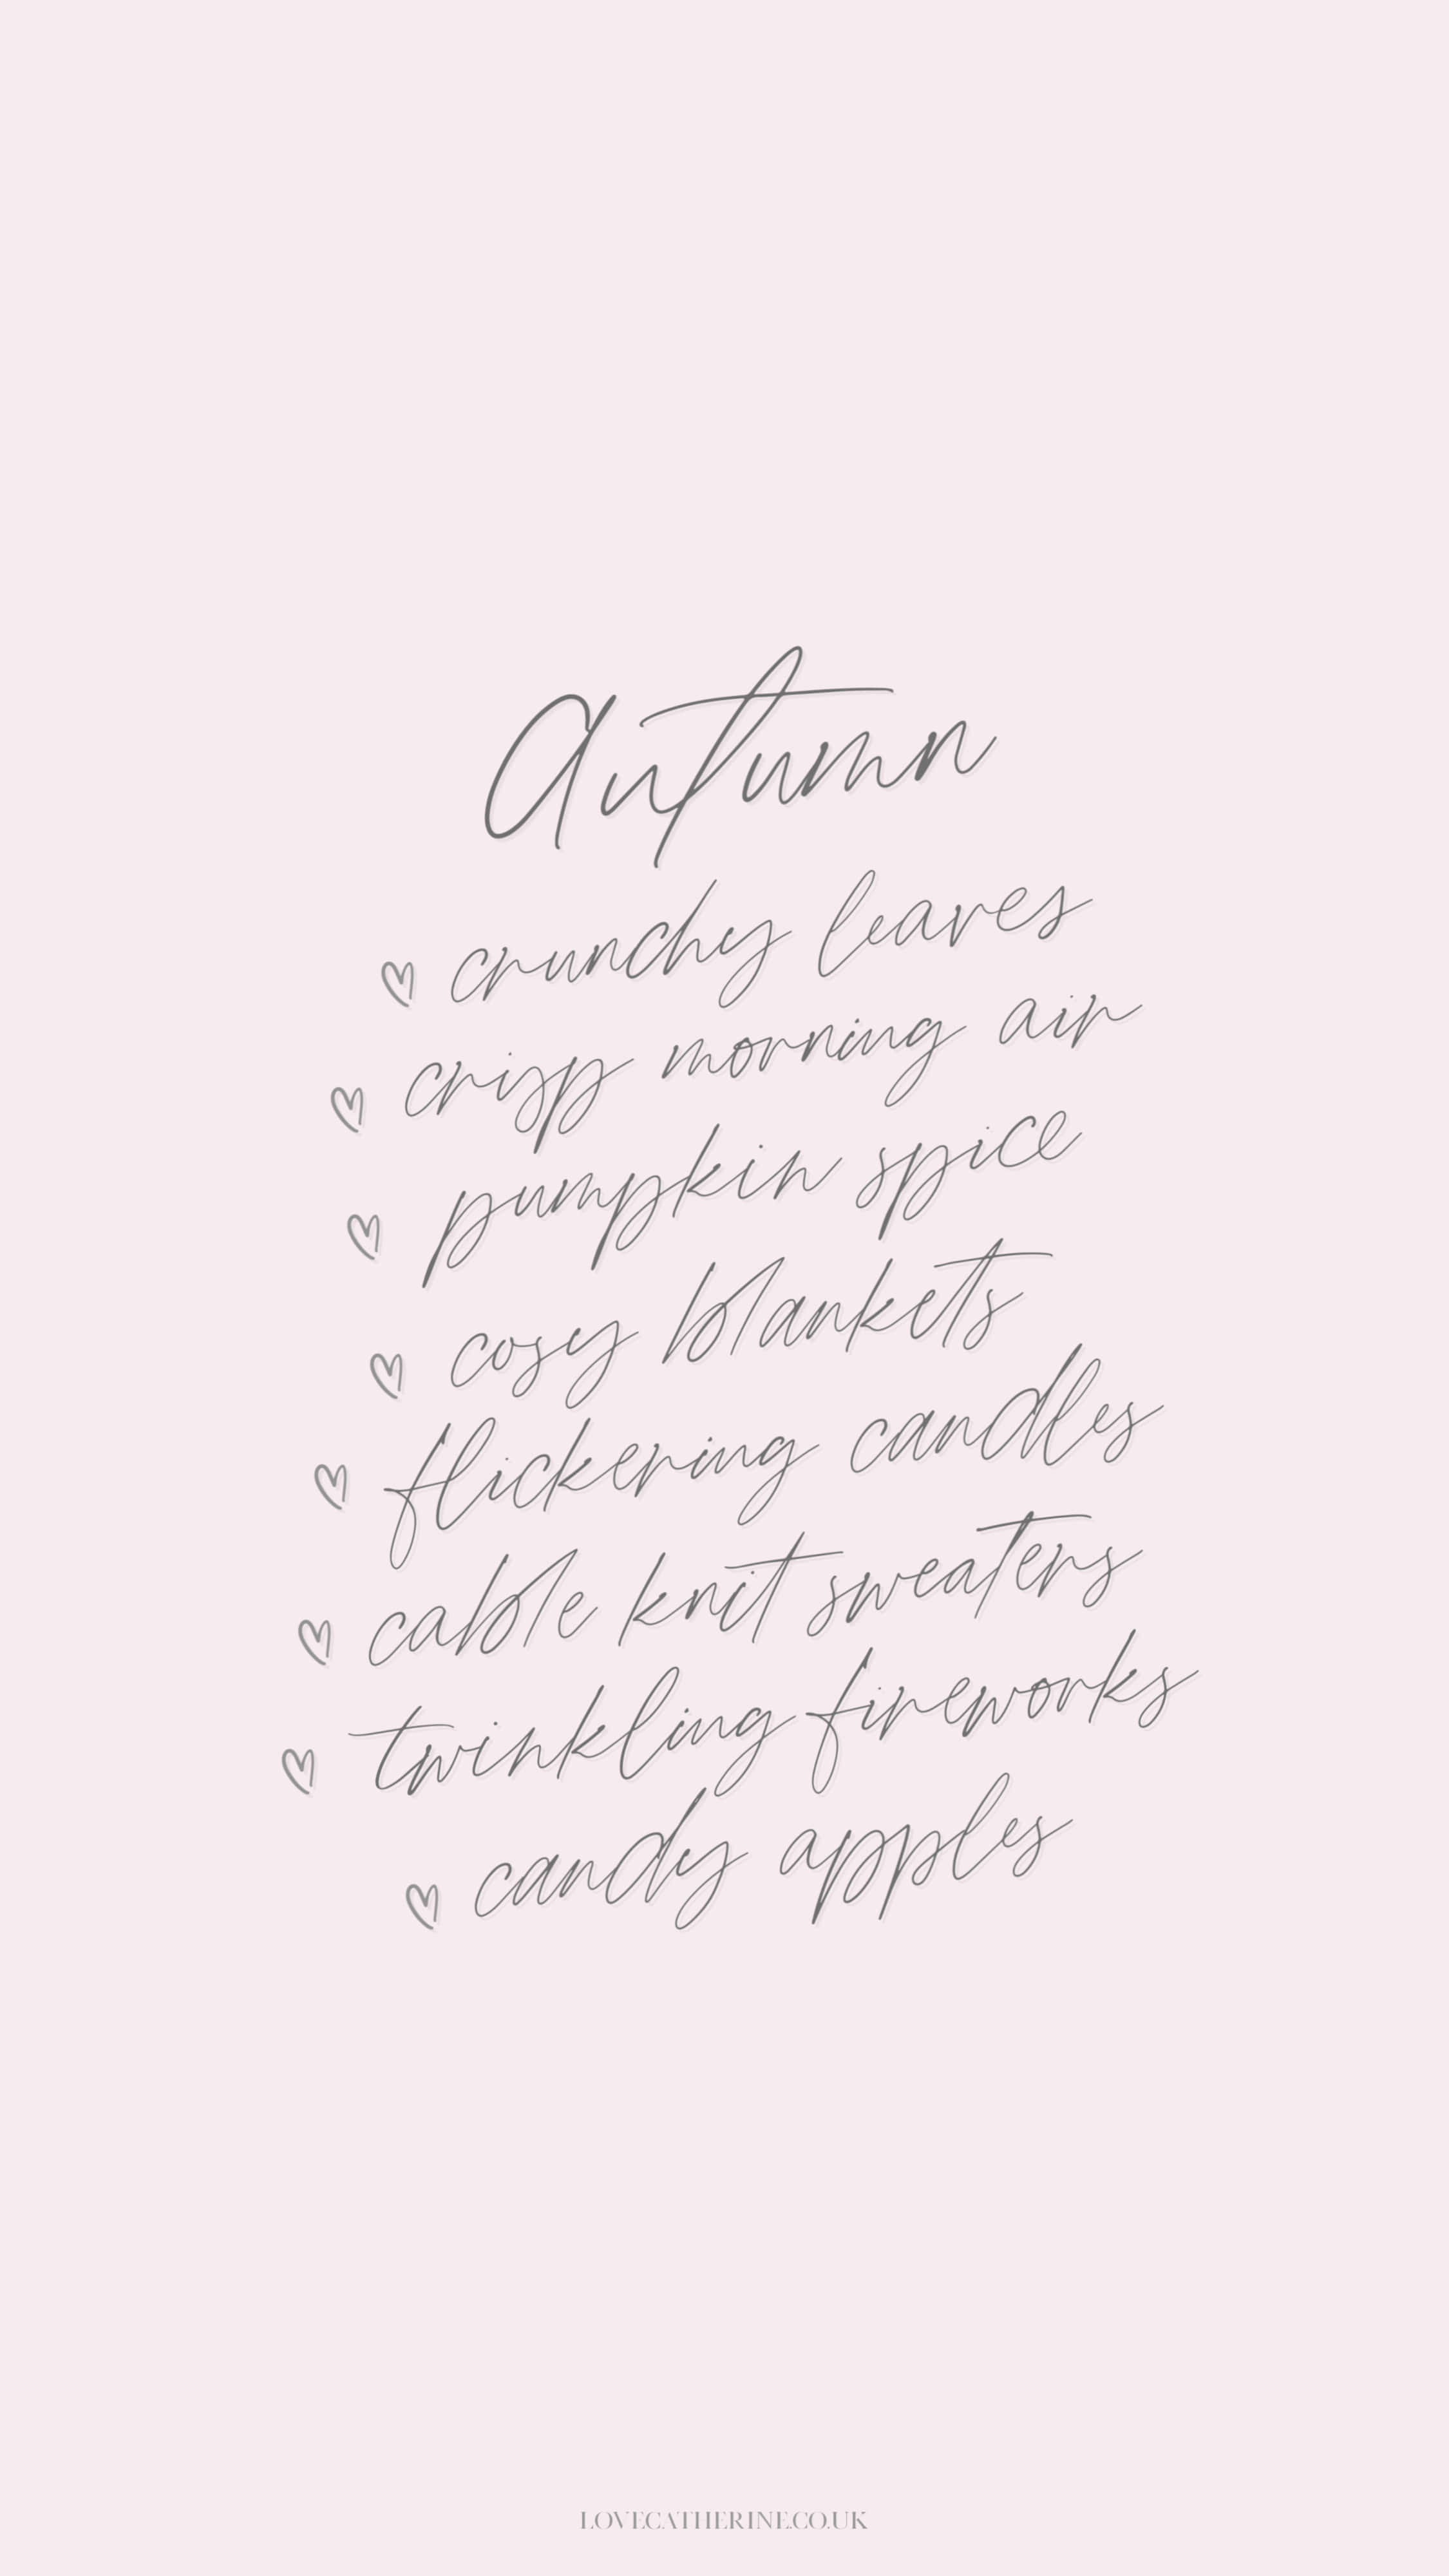 Autumn
♡ crunchy leaves
♡ crisp morning air
♡ pumpkin spice
♡ cosy blankets
♡ flickering candles
♡ cable knit sweaters
♡ twinkling fireworks
♡ candy apples
LOVECATHERINE.CO.UK